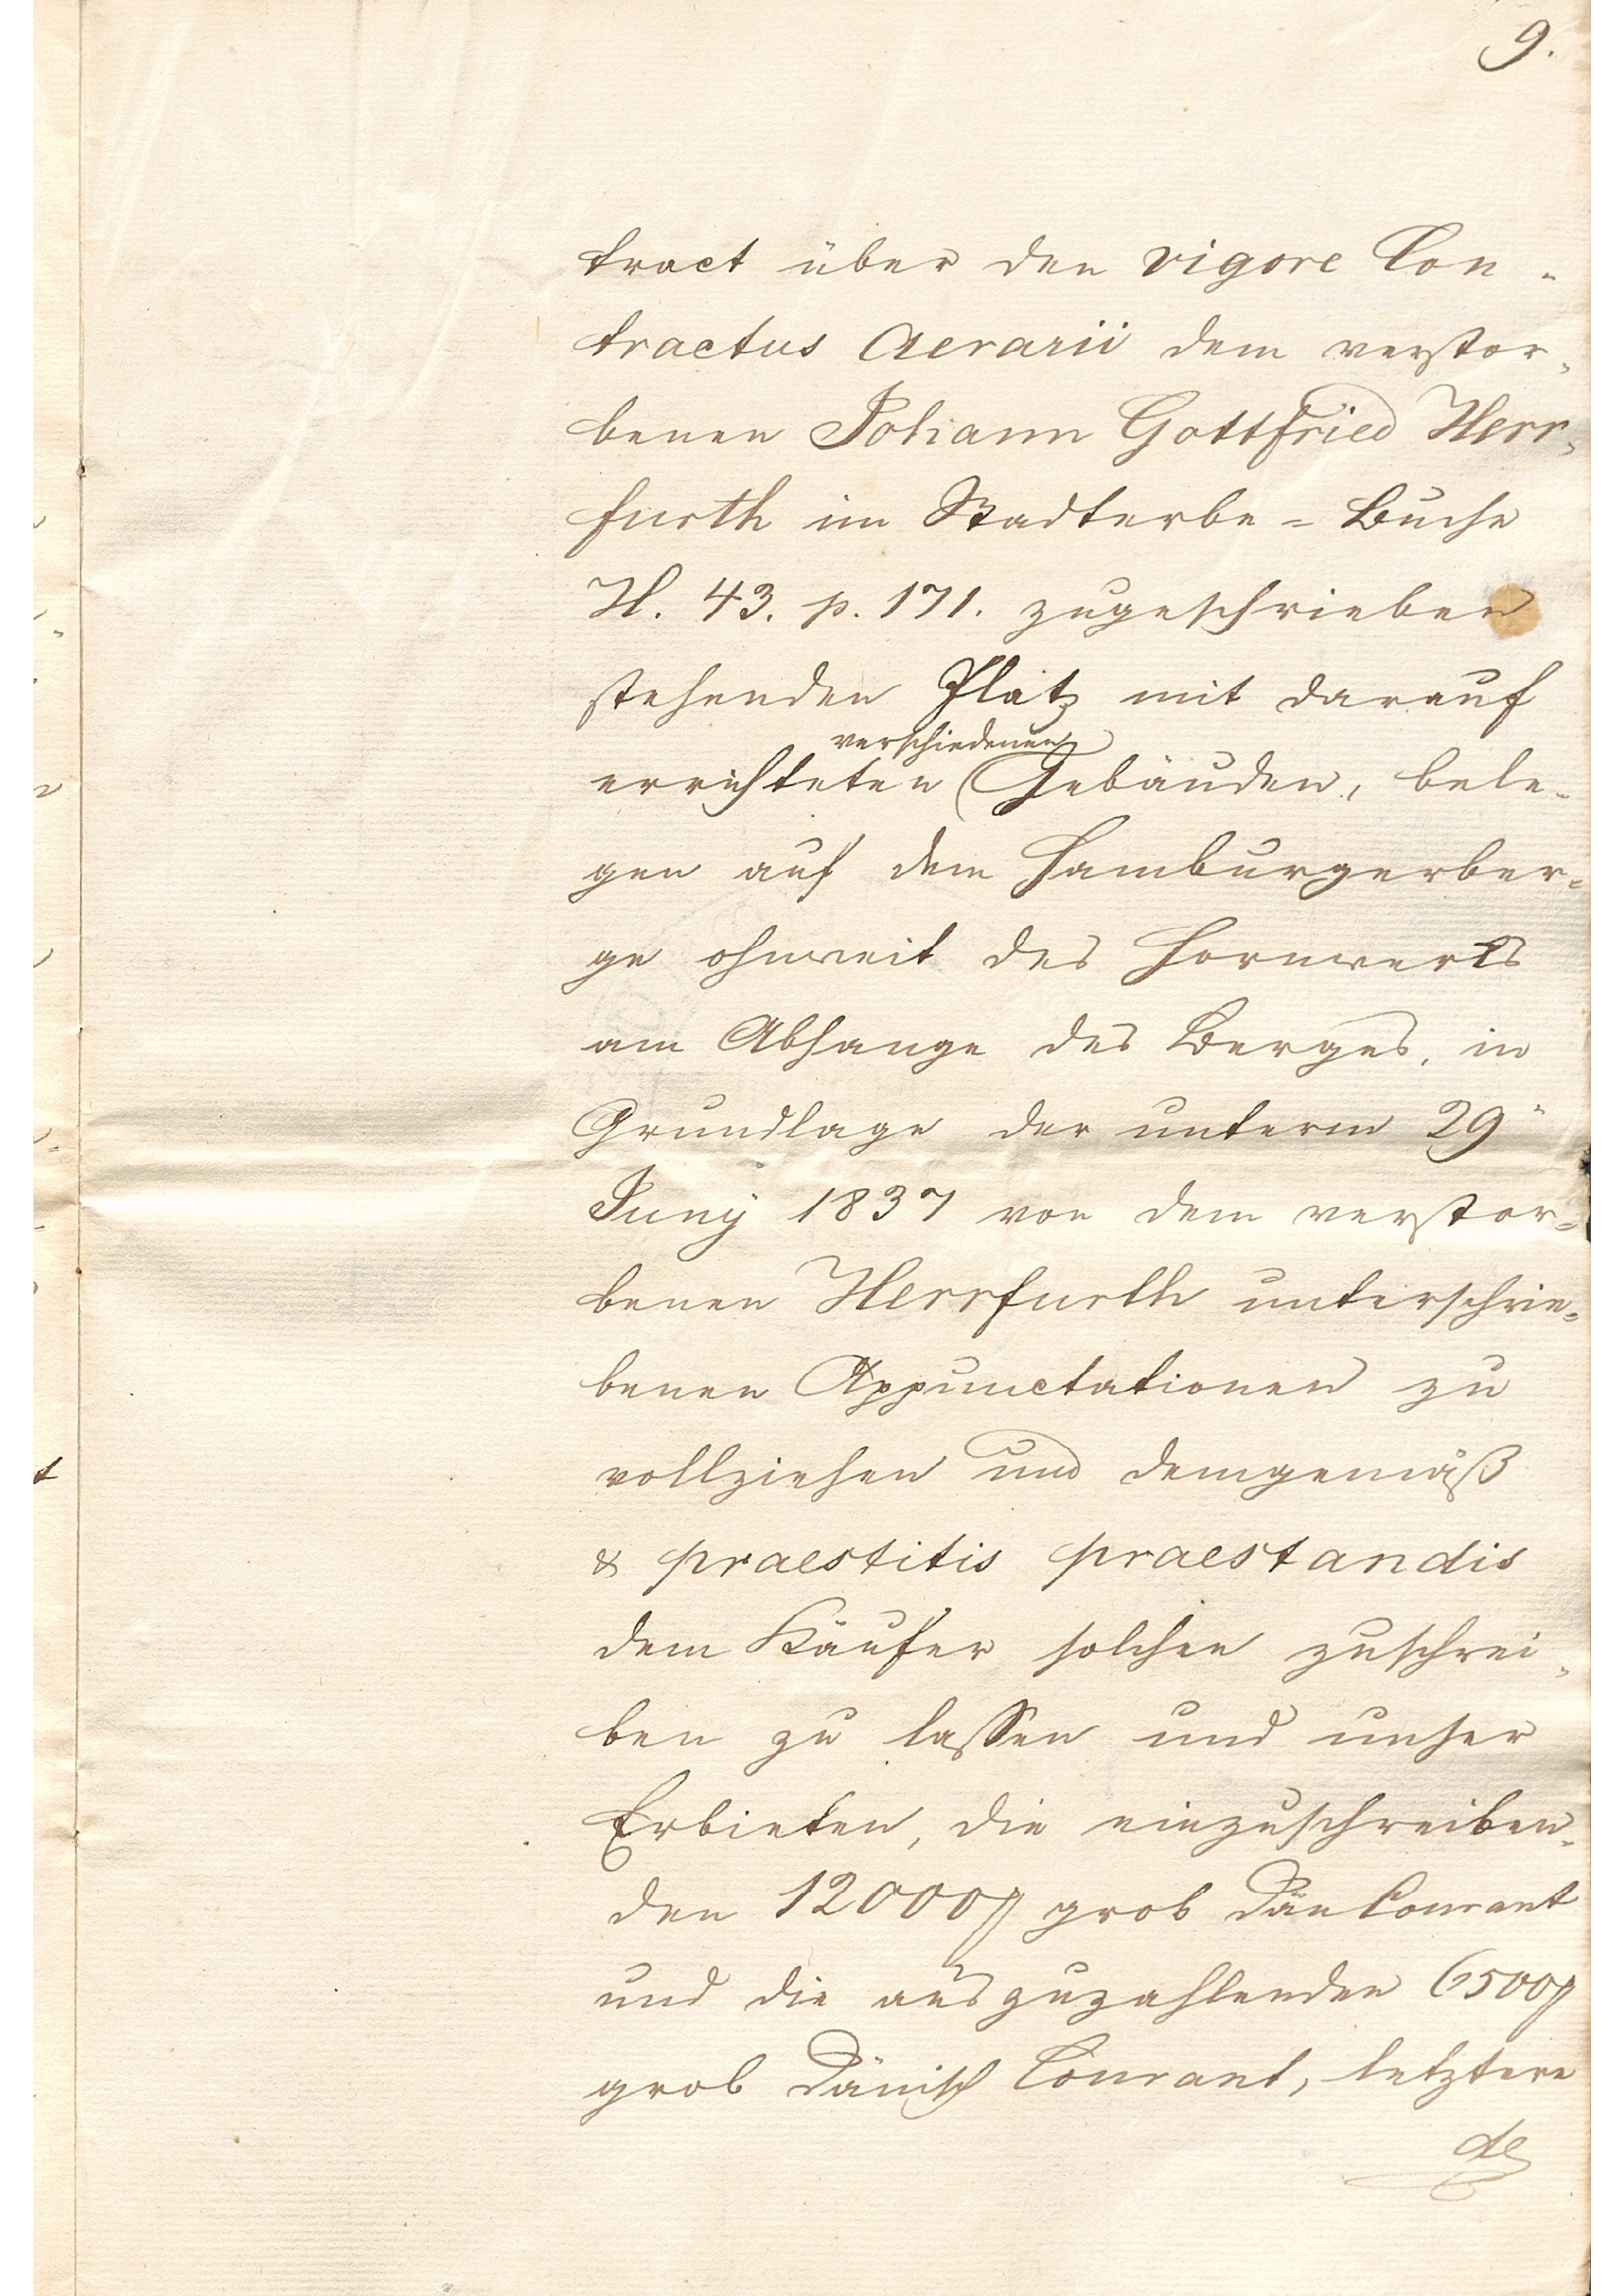 9.
tract über den vigore Con-
tractus Aerarii dem verstor-
benen Johann Gottfried Herr-
furth im Stadterbe=Buche
H. 43. p. 171. zugeschrieben
stehenden Platz mit darauf
verschiedenen
errichteten Gebäuden, bele-
gen auf dem Hamburgerber-
ge ohnweit des Hornwerks
am Abhange des Berges, in
Grundlage der unterm 29"
Juny 1837 von dem verstor-
benen Herrfurth unterschrie-
benen Appunctationen zu
vollziehen und demgemäß
& praestitis praestandis
dem Käufer solchen zuschrei-
ben zu lassen und unser
Erbieten, die einzuschreiben-
den 12000 grob Dän Courant
und die auszuzahlenden 6500
grob Dänisch Courant, letztere